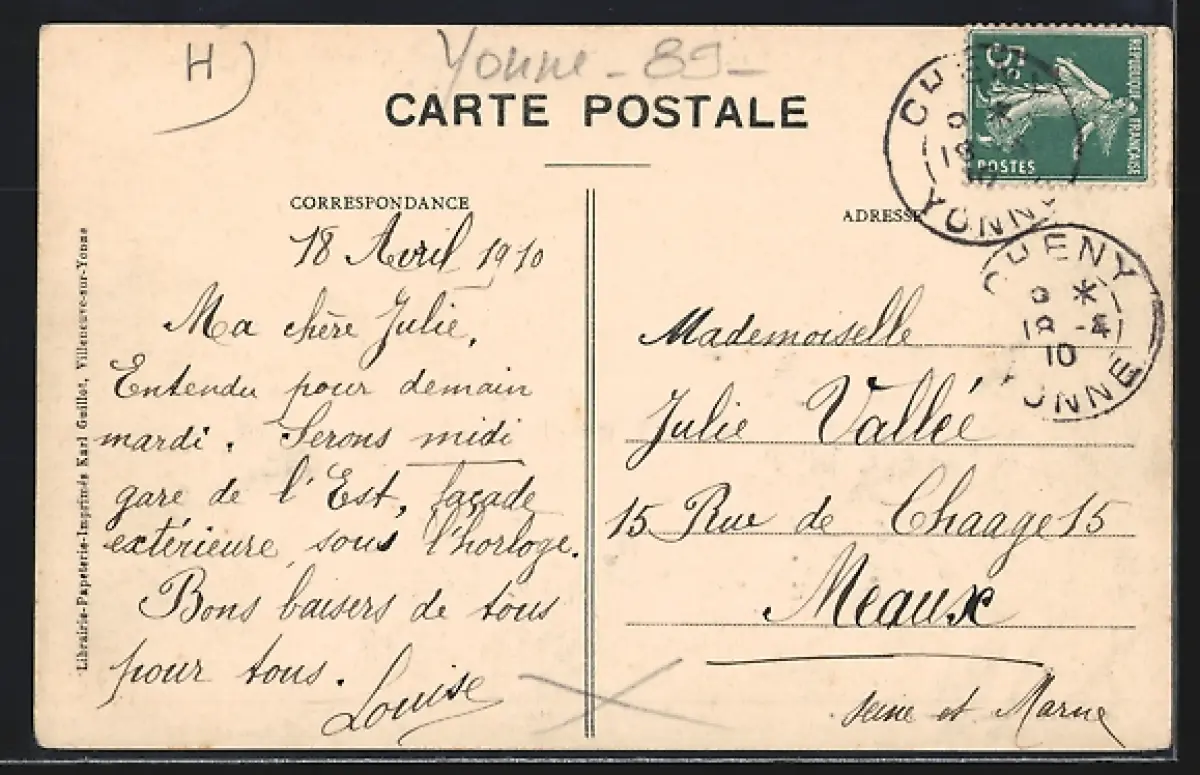 H)
Yonne - 89 -
CARTE POSTALE
CORRESPONDANCE
ADRESSE
18 Avril 1910
Ma chère Julie,
Entendu pour demain
mardi. Serons midi
gare de l'Est, façade
extérieure sous l'horloge.
Bons baisers de tous
pour tous.
Louise
Mademoiselle
Julie Vallée
15 Rue de Chaage 15
Meaux
Seine et Marne
5c
REPUBLIQUE FRANÇAISE
POSTES
CHENY
18
YONNE
CHENY
*
18 -4
10
YONNE
Librairie-Papeterie-Imprimés Karl Guillot, Villeneuve-sur-Yonne